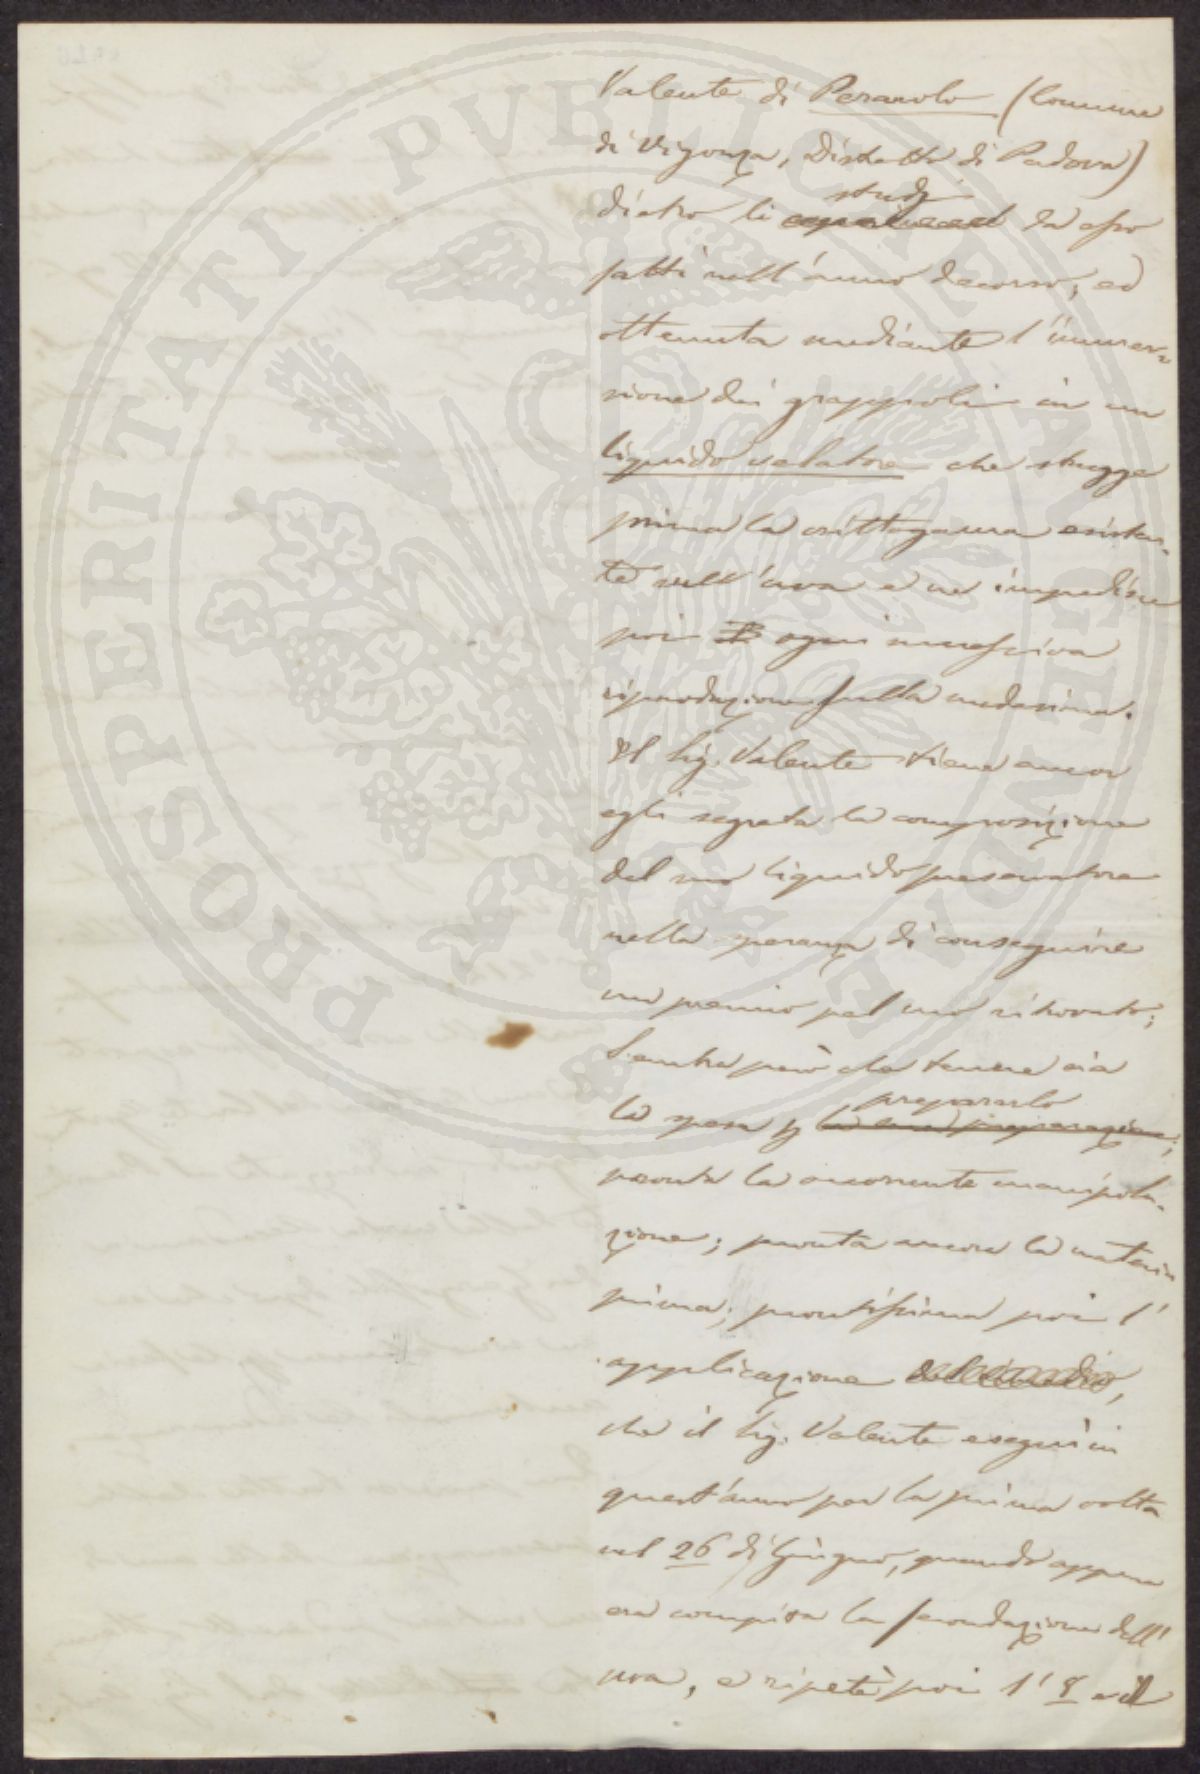 Valente di Perarolo (Comune
di Vigonza, Distretto di Padova)
studj
dietro li esperimenti da esso
fatti nell'anno decorso, ed
ottenuta mediante l'immer-
sione dei grappoli in un
liquido velatore che strugge
prima la crittogama esisten-
te sull'uva e ne impedisce
poi ogni successiva
riproduzione sulla medesima.
Il Sig. Valente tiene ancor
egli segreta la composizione
del suo liquido preservatore
nella speranza di conseguire
un premio pel suo ritrovato;
Sembra però che tenue sia
prepararlo
la spesa p la sua preparazione;
pronta la occorrente manipola-
zione; pronta ancora la materia
prima; prontissima poi l'
applicazione del rimedio,
che il Sig. Valente eseguì in
quest'anno per la prima volta
nel 26 di Giugno, quando appena
era compita la fecondazione dell'
uva, e ripetè poi l'8 ed il
PROSPERITATI PVBLICAE AVGENDAE